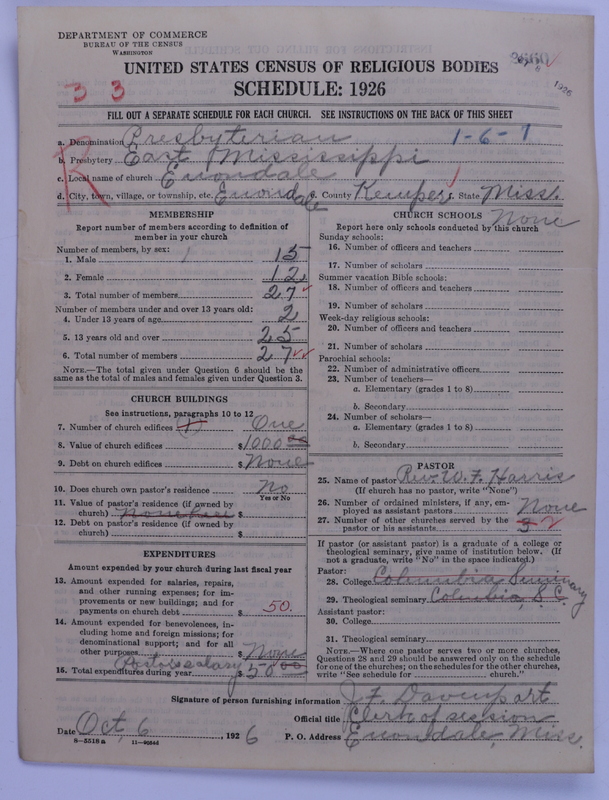 DEPARTMENT OF COMMERCE
BUREAU OF THE CENSUS
WASHINGTON
UNITED STATES CENSUS OF RELIGIOUS BODIES
SCHEDULE: 1926
3 3
1926
FILL OUT A SEPARATE SCHEDULE FOR EACH CHURCH. SEE INSTRUCTIONS ON THE BACK OF THIS SHEET
R
a. Denomination Presbyterian 1-6-7
b. Presbytery East Mississippi
c. Local name of church Enondale
d. City, town, village, or township, etc. Enondale e. County Kemper f. State Miss.
MEMBERSHIP
Report number of members according to definition of
member in your church
Number of members, by sex:
1. Male 15
2. Female 12
3. Total number of members 27
Number of members under and over 13 years old:
4. Under 13 years of age 2
5. 13 years old and over 25
6. Total number of members 27
NOTE.—The total given under Question 6 should be the
same as the total of males and females given under Question 3.
CHURCH BUILDINGS
See instructions, paragraphs 10 to 12
7. Number of church edifices (1) One
8. Value of church edifices $1000.00
9. Debt on church edifices $ None
10. Does church own pastor's residence No
Yes or No
11. Value of pastor's residence (if owned by
church) $
12. Debt on pastor's residence (if owned by
church) $
EXPENDITURES
Amount expended by your church during last fiscal year
13. Amount expended for salaries, repairs,
and other running expenses; for im-
provements or new buildings; and for
payments on church debt $ 50.
14. Amount expended for benevolences, in-
cluding home and foreign missions; for
denominational support; and for all
other purposes $ None
Pastors salary
15. Total expenditures during year $ 50.00
CHURCH SCHOOLS None
Report here only schools conducted by this church
Sunday schools:
16. Number of officers and teachers
17. Number of scholars
Summer vacation Bible schools:
18. Number of officers and teachers
19. Number of scholars
Week-day religious schools:
20. Number of officers and teachers
21. Number of scholars
Parochial schools:
22. Number of administrative officers
23. Number of teachers—
a. Elementary (grades 1 to 8)
b. Secondary
24. Number of scholars—
a. Elementary (grades 1 to 8)
b. Secondary
PASTOR
25. Name of pastor Rev. W. F. Harris
(If church has no pastor, write "None")
26. Number of ordained ministers, if any, em-
ployed as assistant pastors None
27. Number of other churches served by the
pastor or his assistants 3 2
If pastor (or assistant pastor) is a graduate of a college or
theological seminary, give name of institution below. (If
not a graduate, write "No" in the space indicated.)
Pastor:
28. College Columbia Seminary
29. Theological seminary Columbia, S.C.
Assistant pastor:
30. College
31. Theological seminary
NOTE.—Where one pastor serves two or more churches,
Questions 28 and 29 should be answered only on the schedule
for one of the churches; on the schedules for the other churches
write "See schedule for church."
Signature of person furnishing information J. F. Davenport
Official title Clerk of session
Date Oct. 6, 1926 P. O. Address Enondale, Miss.
8-5518 a